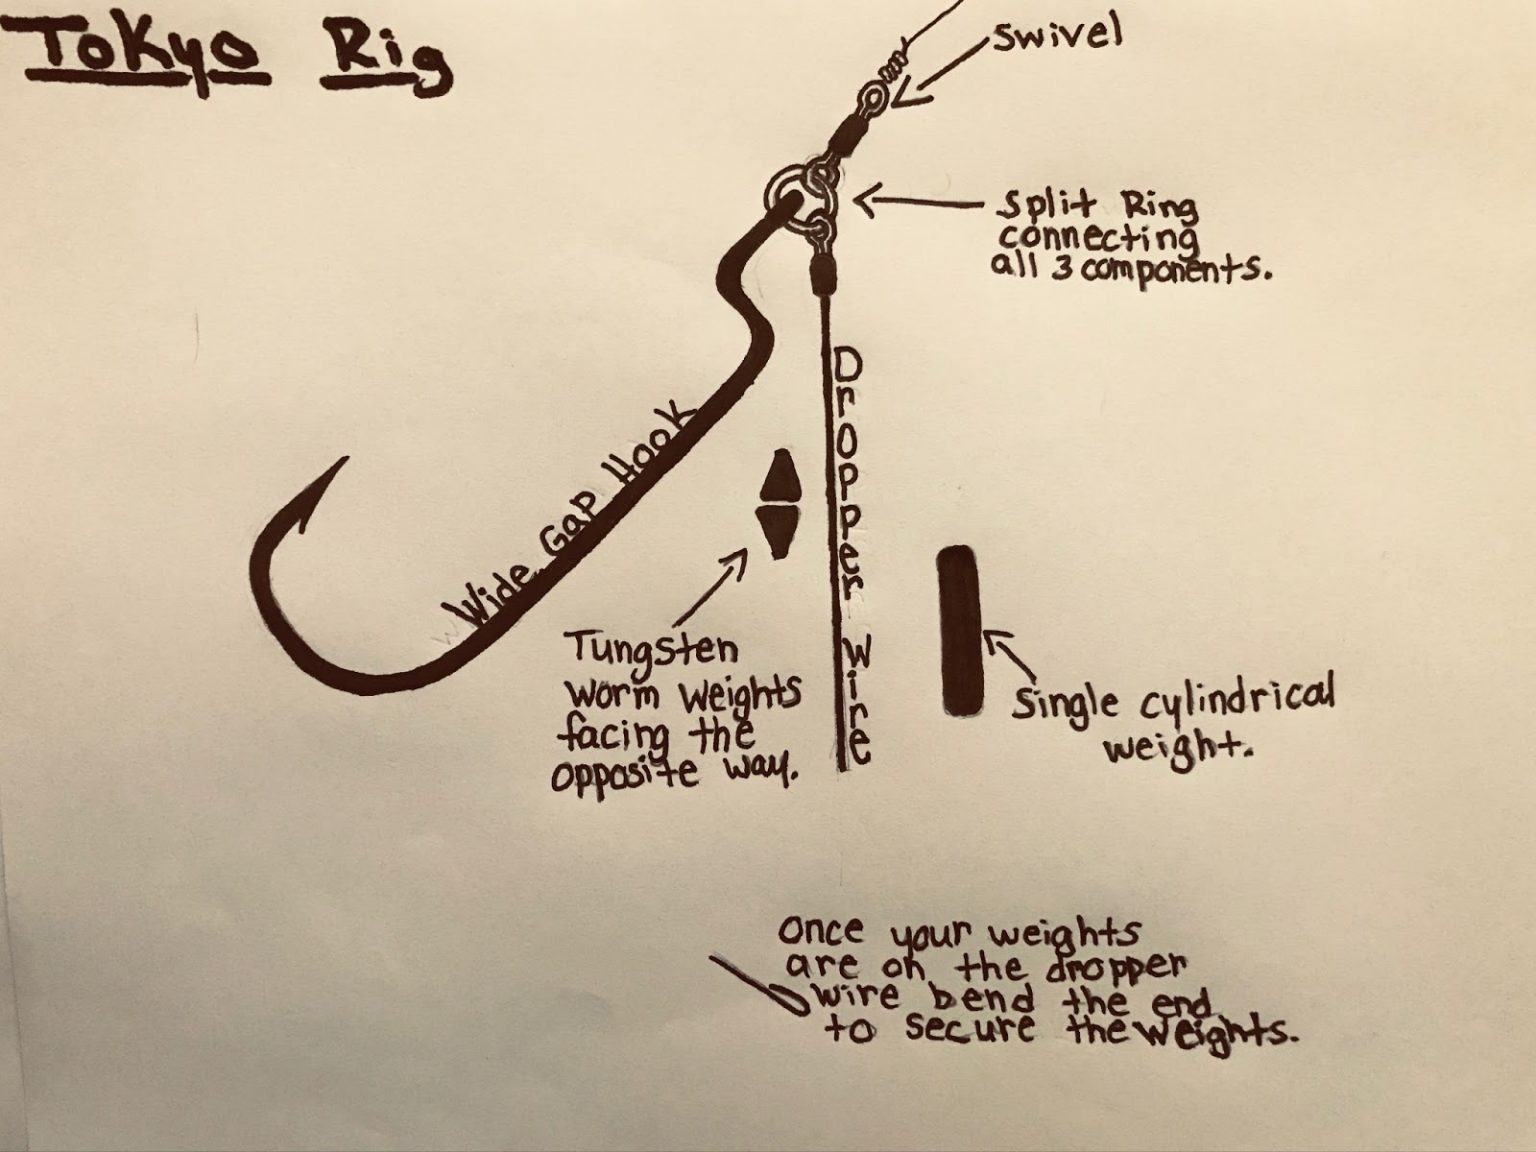 Tokyo Rig
swivel
Split Ring
connecting
all 3 components.
Dropper Wire
Wide Gap Hook
Tungsten
worm weights
facing the
opposite way.
Single cylindrical
weight.
Once your weights
are on the dropper
wire bend the end
to secure the weights.